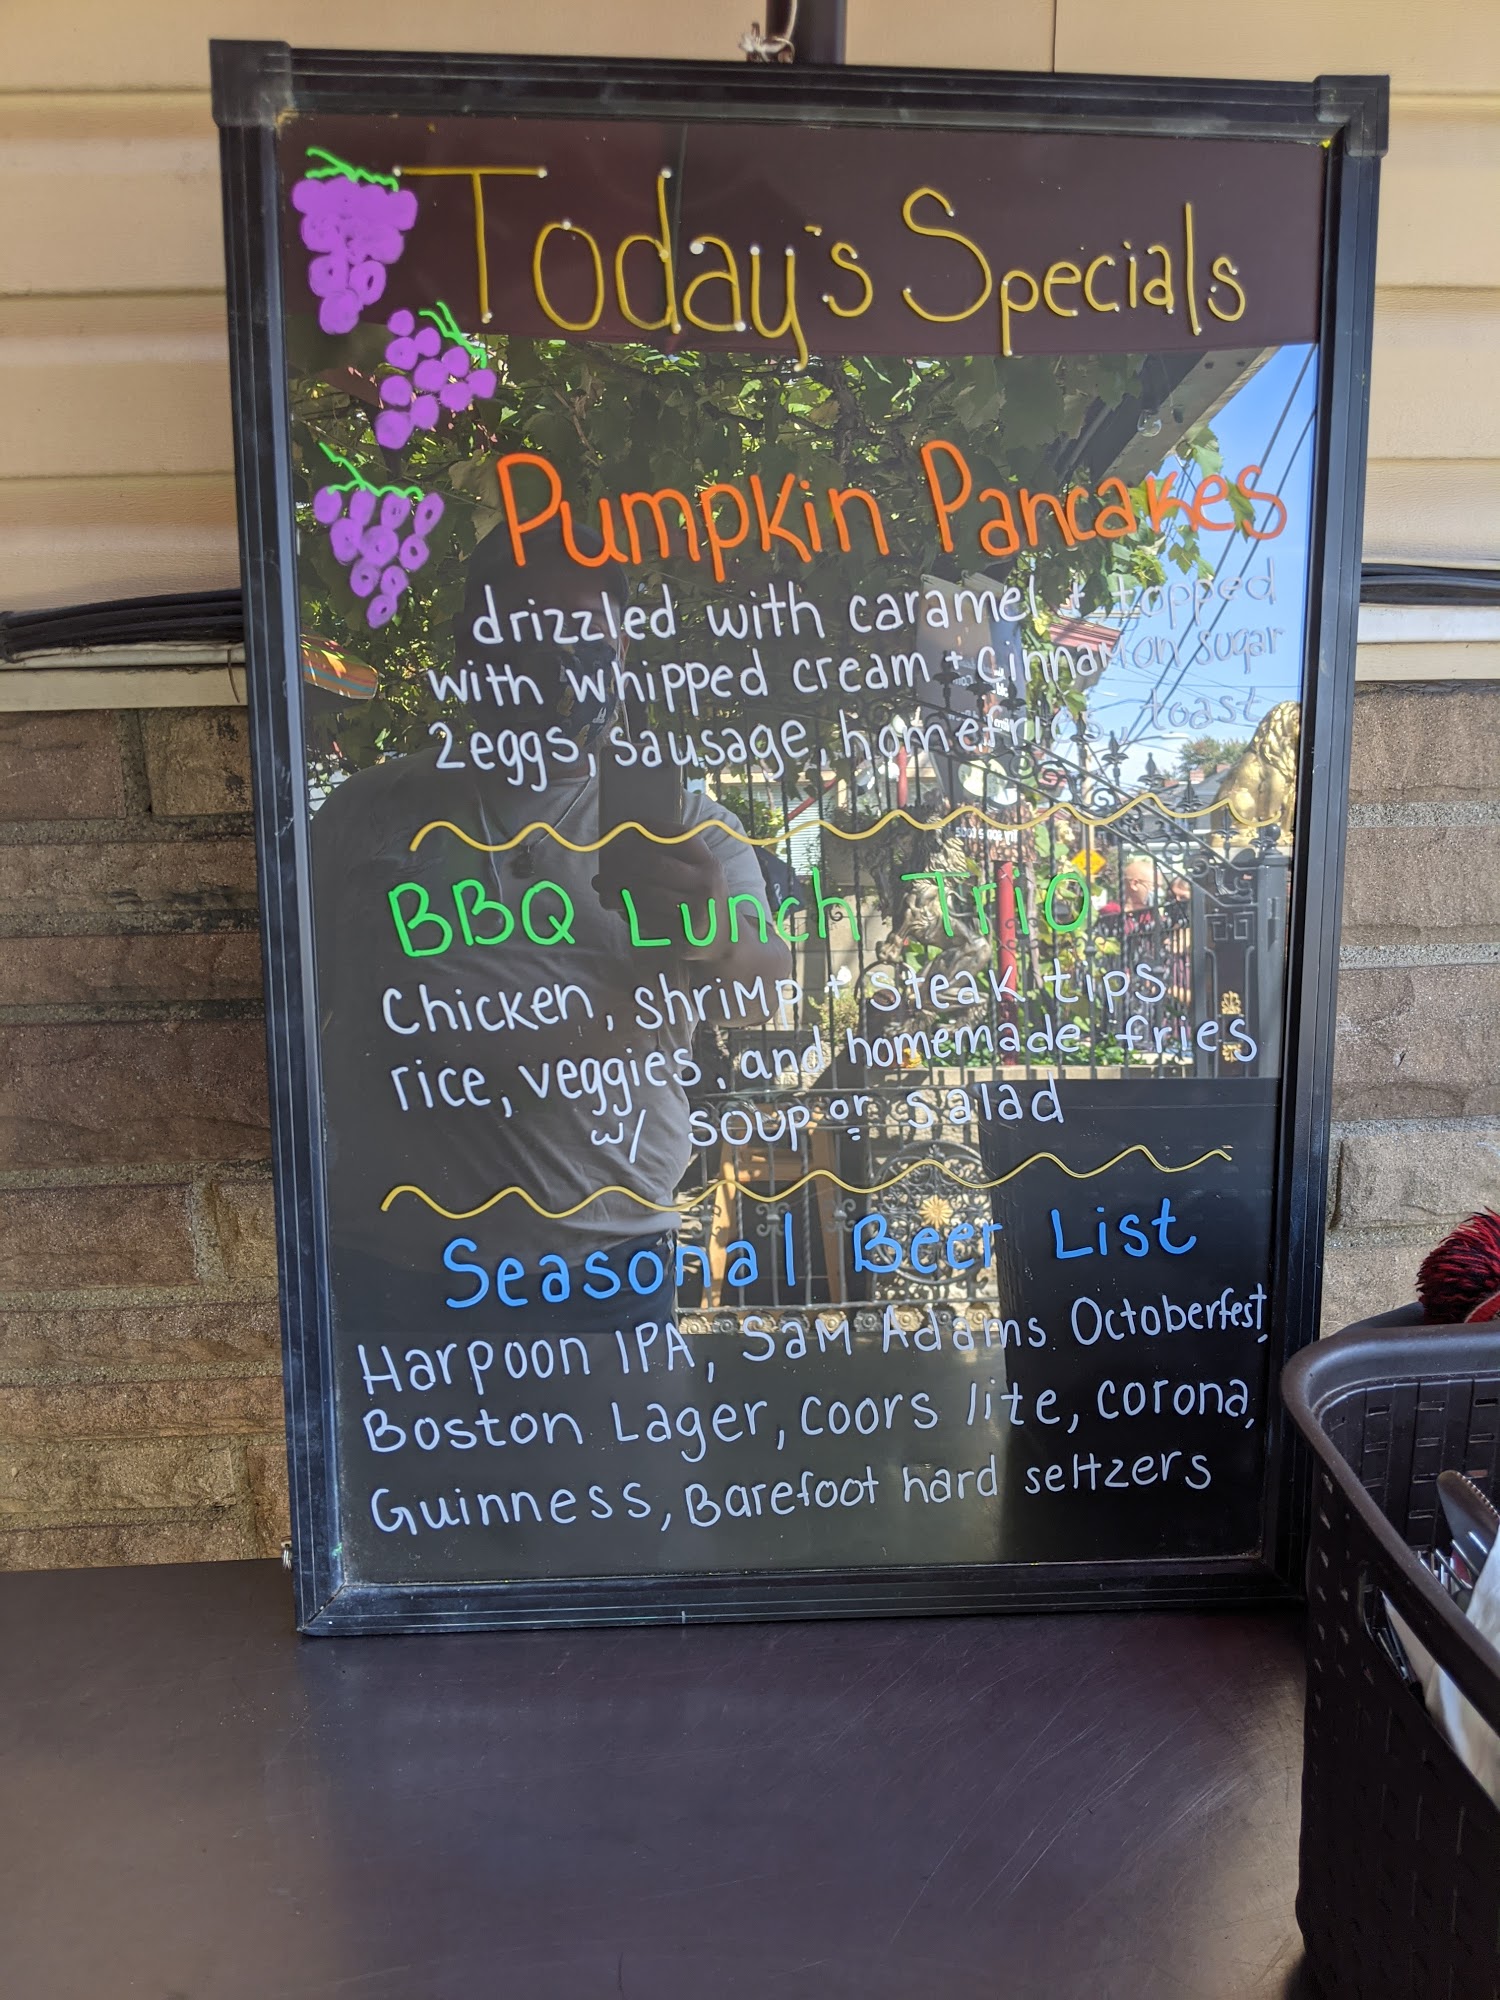 Today's Specials
Pumpkin Pancakes
drizzled with caramel + topped
with whipped cream + cinnamon sugar
2eggs, sausage, homefries, toast
BBQ Lunch Trio
Chicken, shrimp + steak tips
rice, veggies, and homemade fries
w/ soup or salad
Seasonal Beer List
Harpoon IPA, Sam Adams Octoberfest,
Boston Lager, coors lite, corona,
Guinness, Barefoot hard seltzers